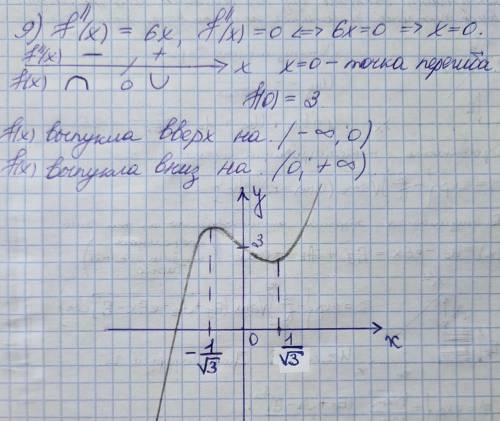 9) f''(x) = 6x, f''(x)=0 <=> 6x=0 => x=0.
f''(x) − +
x x=0 – точка перегиба
f(x) ∩ 0 ∪
f(0) = 3
f(x) выпукла вверх на: (-∞; 0)
f(x) выпукла вниз на: (0; +∞)
y
3
0 x
-1/√3 1/√3